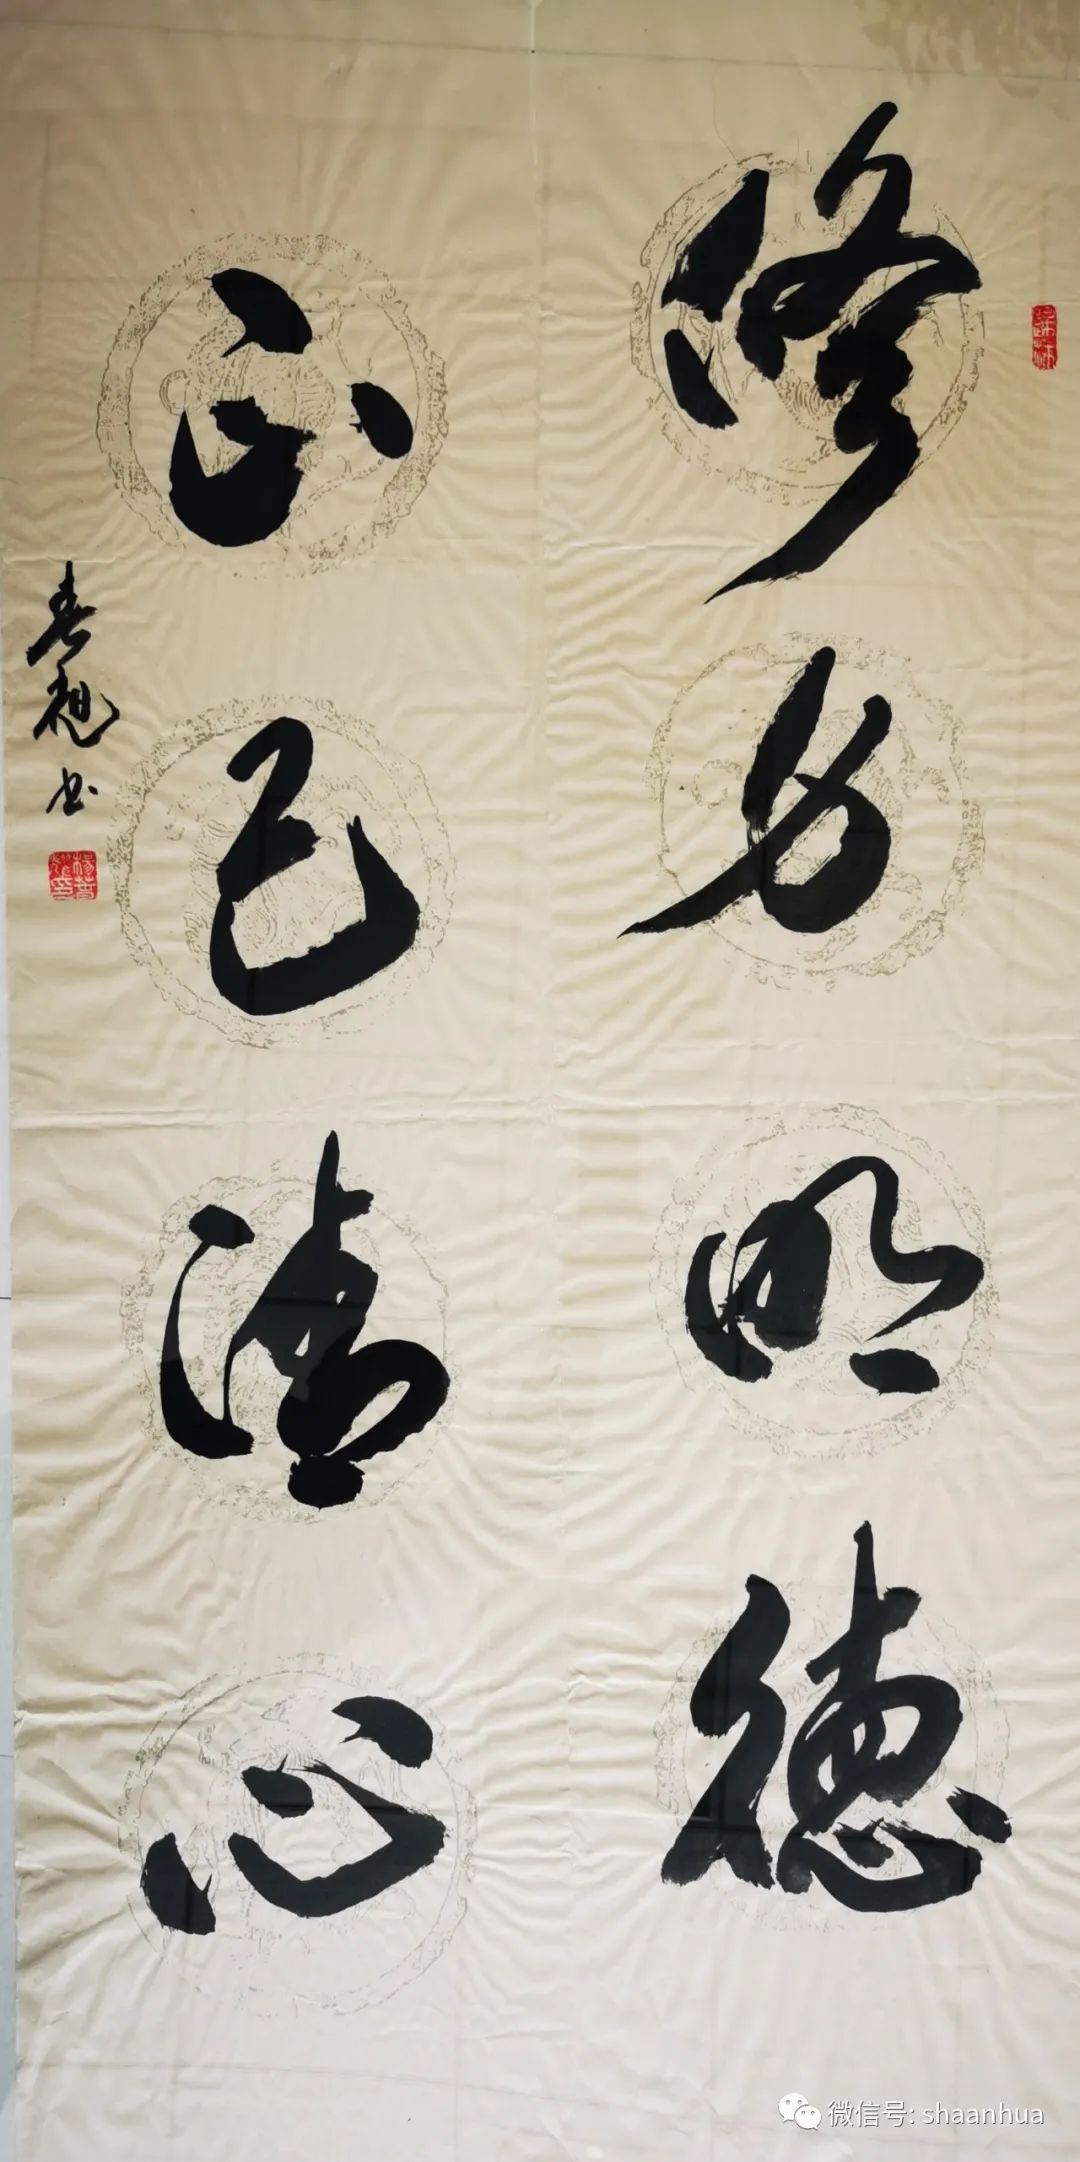 修身明德
正己清心
书
微信号: shaanhua